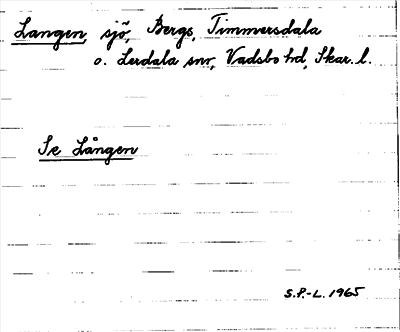 Langen, sjö, Bergs, Timmersdala
o. Lerdala snr, Vadsbo hd, Skar. l.
Se Lången
S.P.-L. 1965